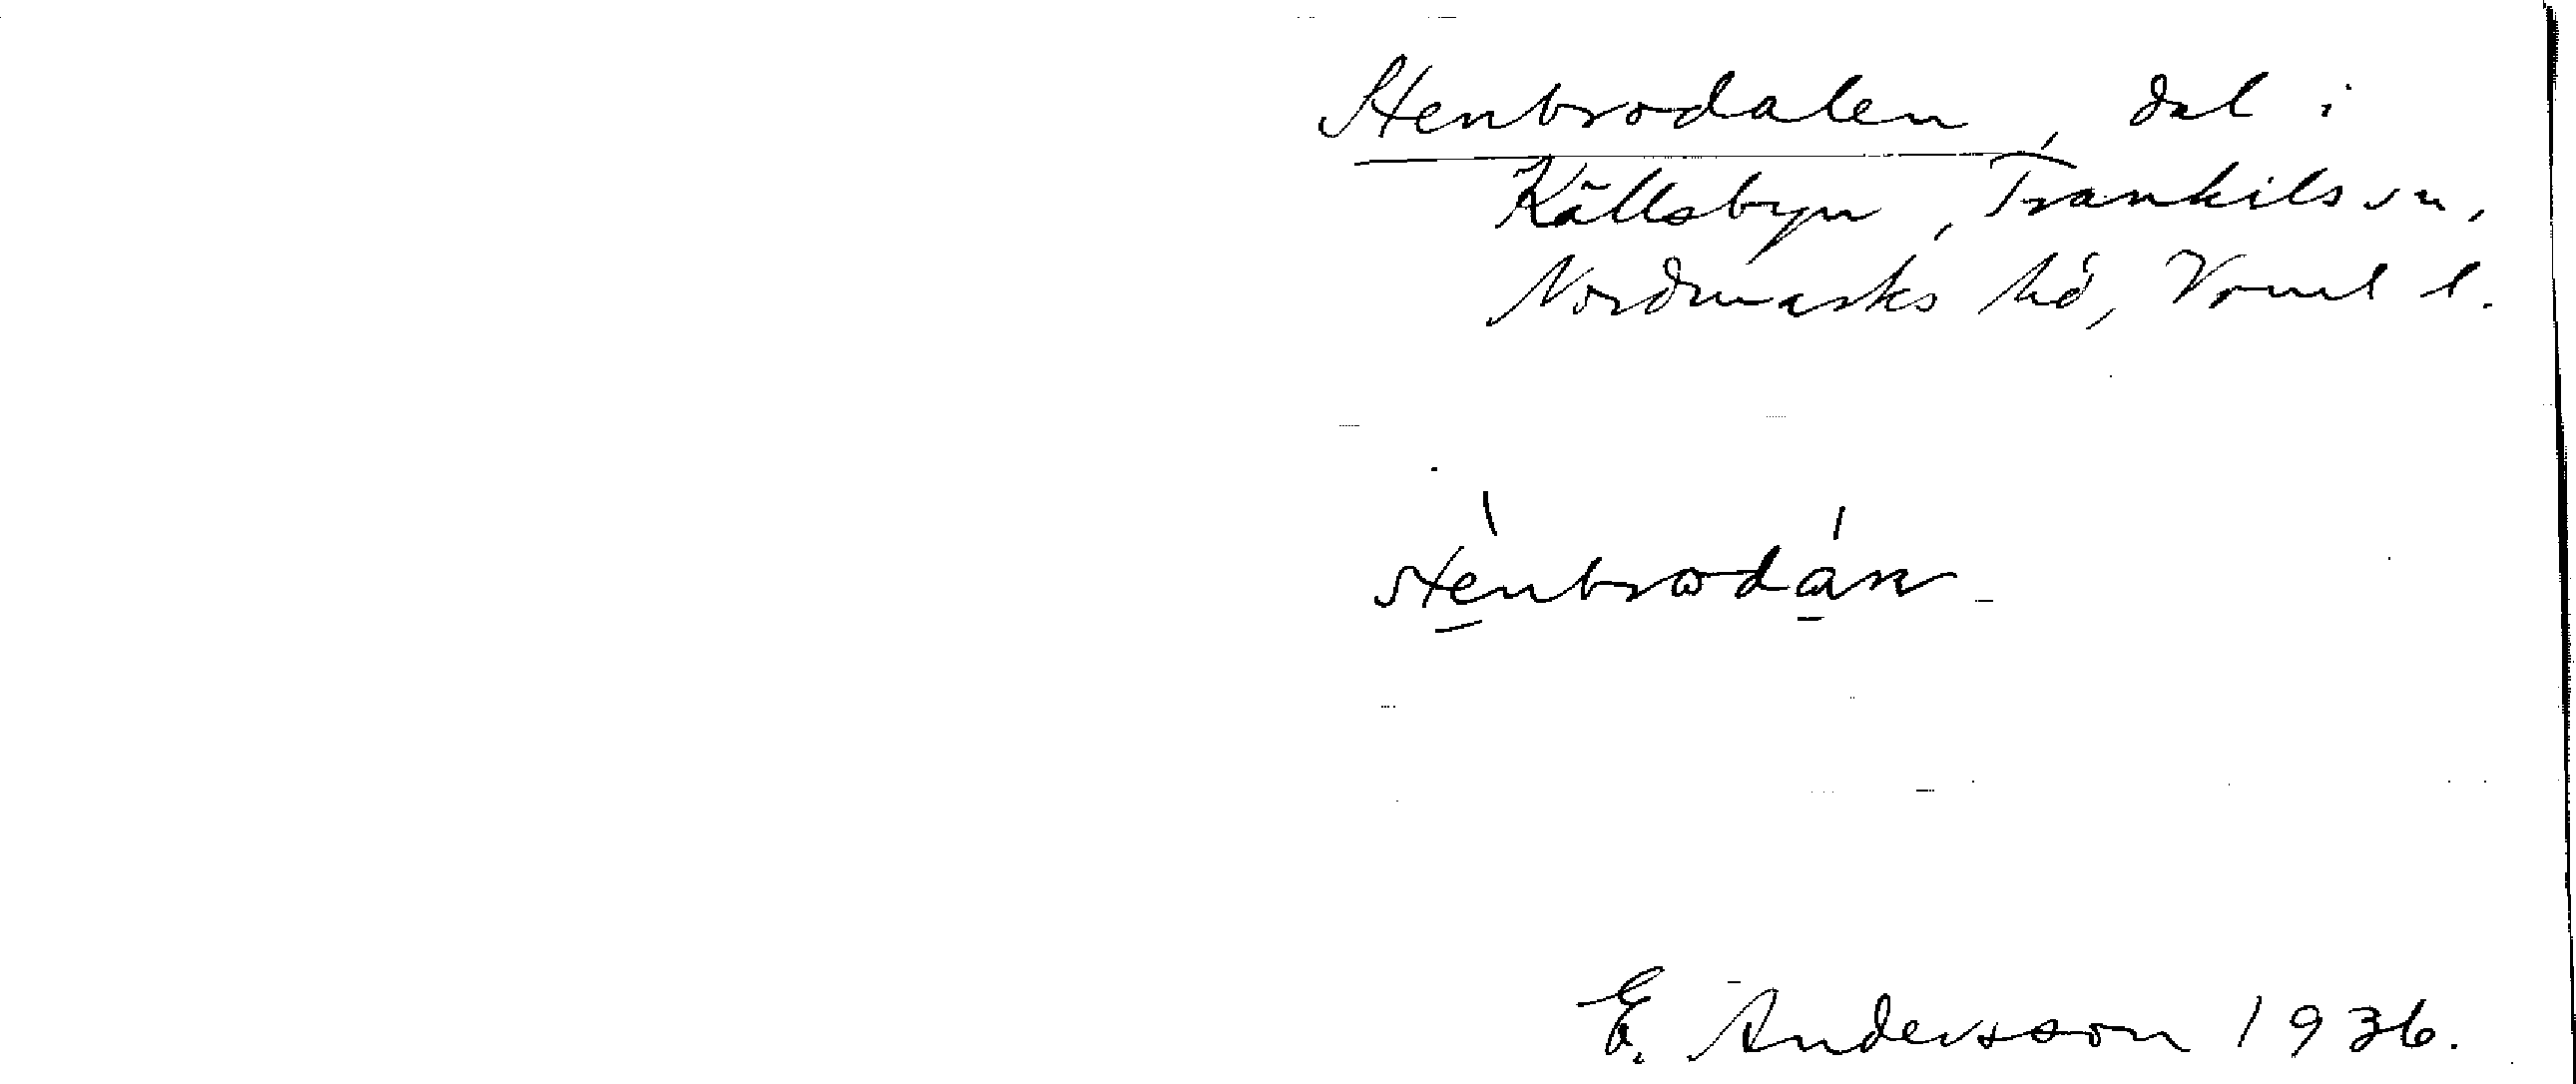 Stenbrodalen, dal i
Källsbyn, Trankils sn,
Nordmarks hd, Vrml l.
stenbrodan
E. Andersson 1936.